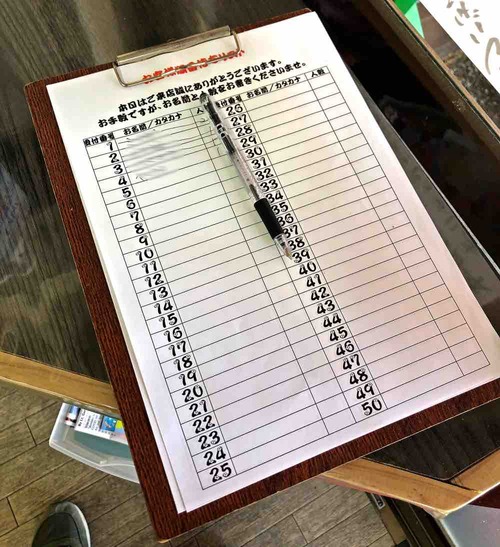 本日はご来店誠にありがとうございます。
お手数ですが、お名前と人数をお書きくださいませ。
受付番号 お名前/カタカナ 人 受付番号 お名前/カタカナ 人数
1 26
2 27
3 28
4 29
5 30
6 31
7 32
8 33
9 34
10 35
11 36
12 37
13 38
14 39
15 40
16 41
17 42
18 43
19 44
20 45
21 46
22 47
23 48
24 49
25 50